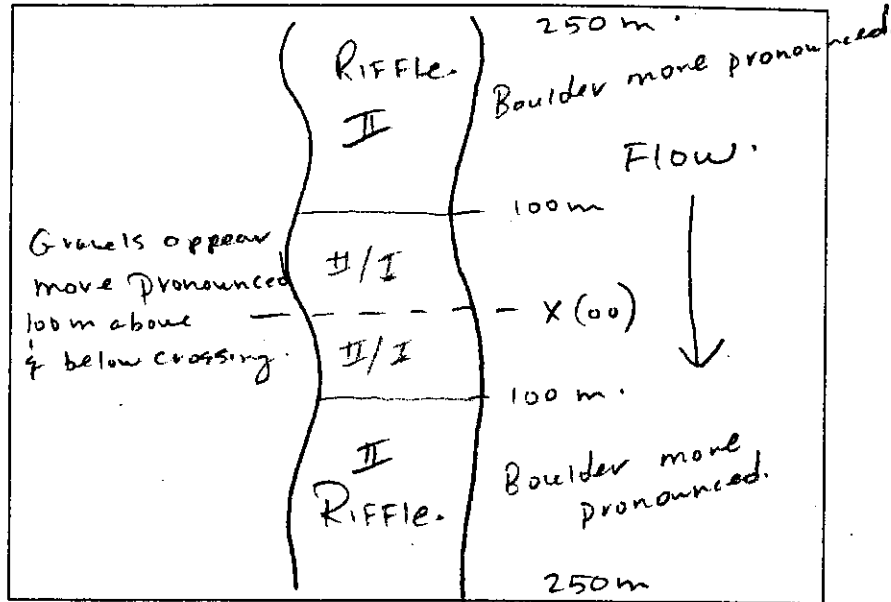 250 m.
RIFFLE.
Boulder more pronounced
II
Flow.
100 m
Gravels appear
more pronounced
100 m above
& below crossing.
II/I
X (00)
II/I
100 m.
II
RIFFLE.
Boulder more
pronounced.
250 m